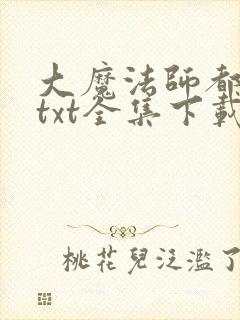 大魔法師都
txt全集下載
桃花兒泛濫了